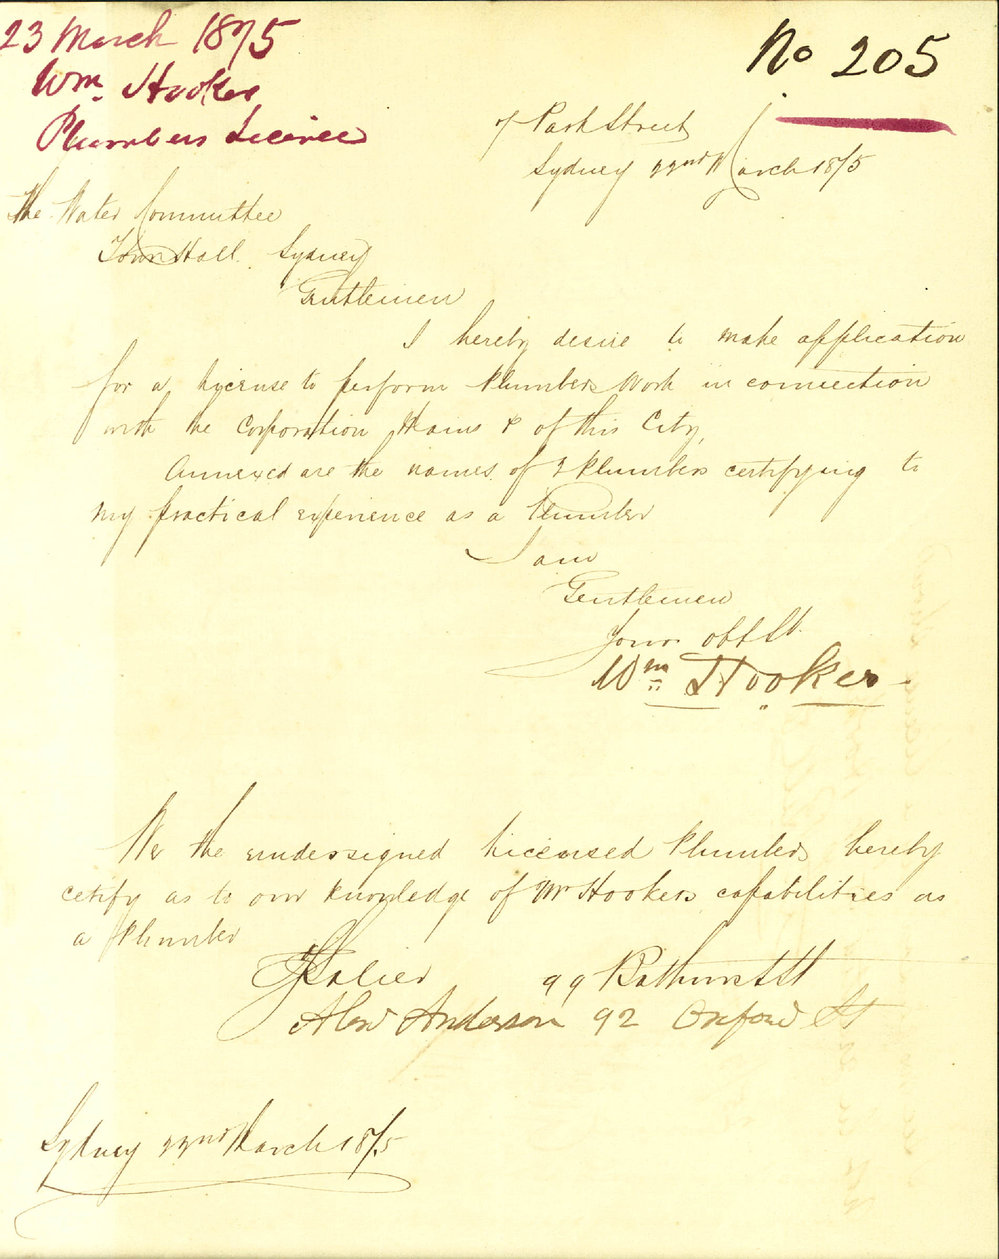 23 March 1875
Wm. Hooker
Plumbers Licence
No 205
of Park Street
Sydney 22nd March 1875
The Water Committee
Town Hall Sydney
Gentlemen
I hereby desire to make application
for a lycense to perform Plumbers Work in connection
with the Corporation Mains & of this City,
Annexed are the names of 2 Plumbers certifying to
my practical experience as a Plumber
I am
Gentlemen
Your obt St.
Wm Hooker.
We the undersigned Licensed Plumbers hereby
cetify as to our knowledge of Mr Hookers capabilities as
a Plumber
99 Bathurst St
Alex Anderson 92 Oxford St
Sydney 22nd March 1875